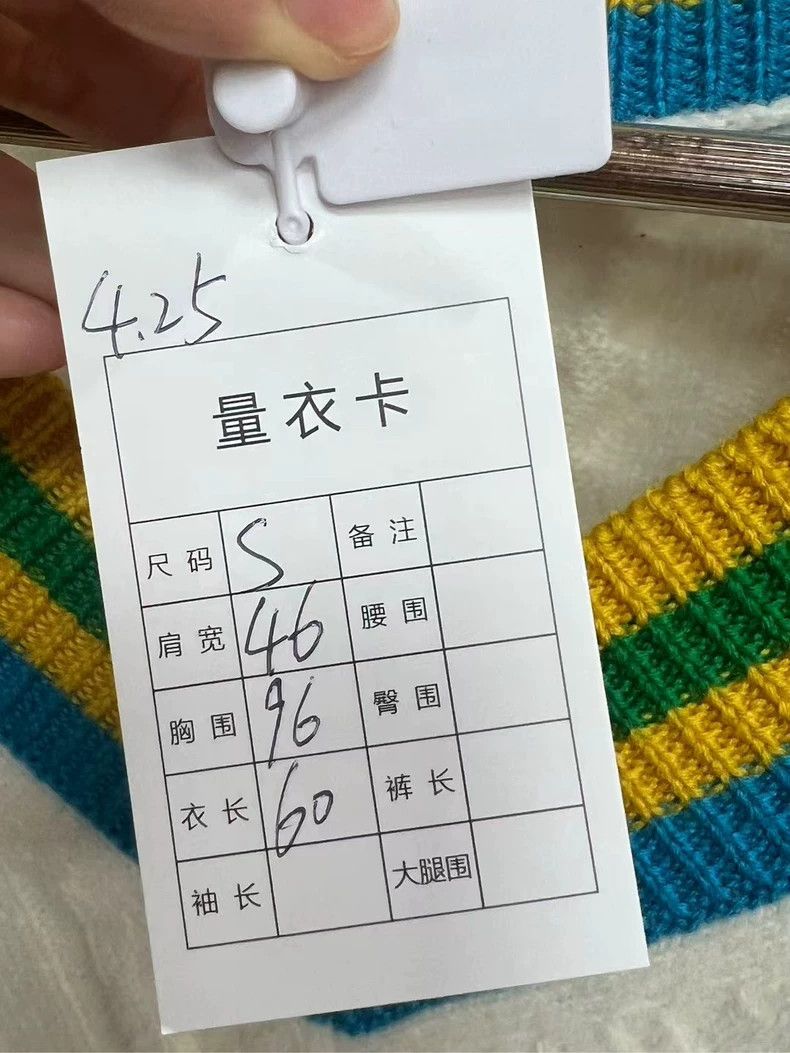 4.25
量衣卡
尺码 S 备注
肩宽 46 腰围
胸围 96 臀围
衣长 60 裤长
袖长 大腿围